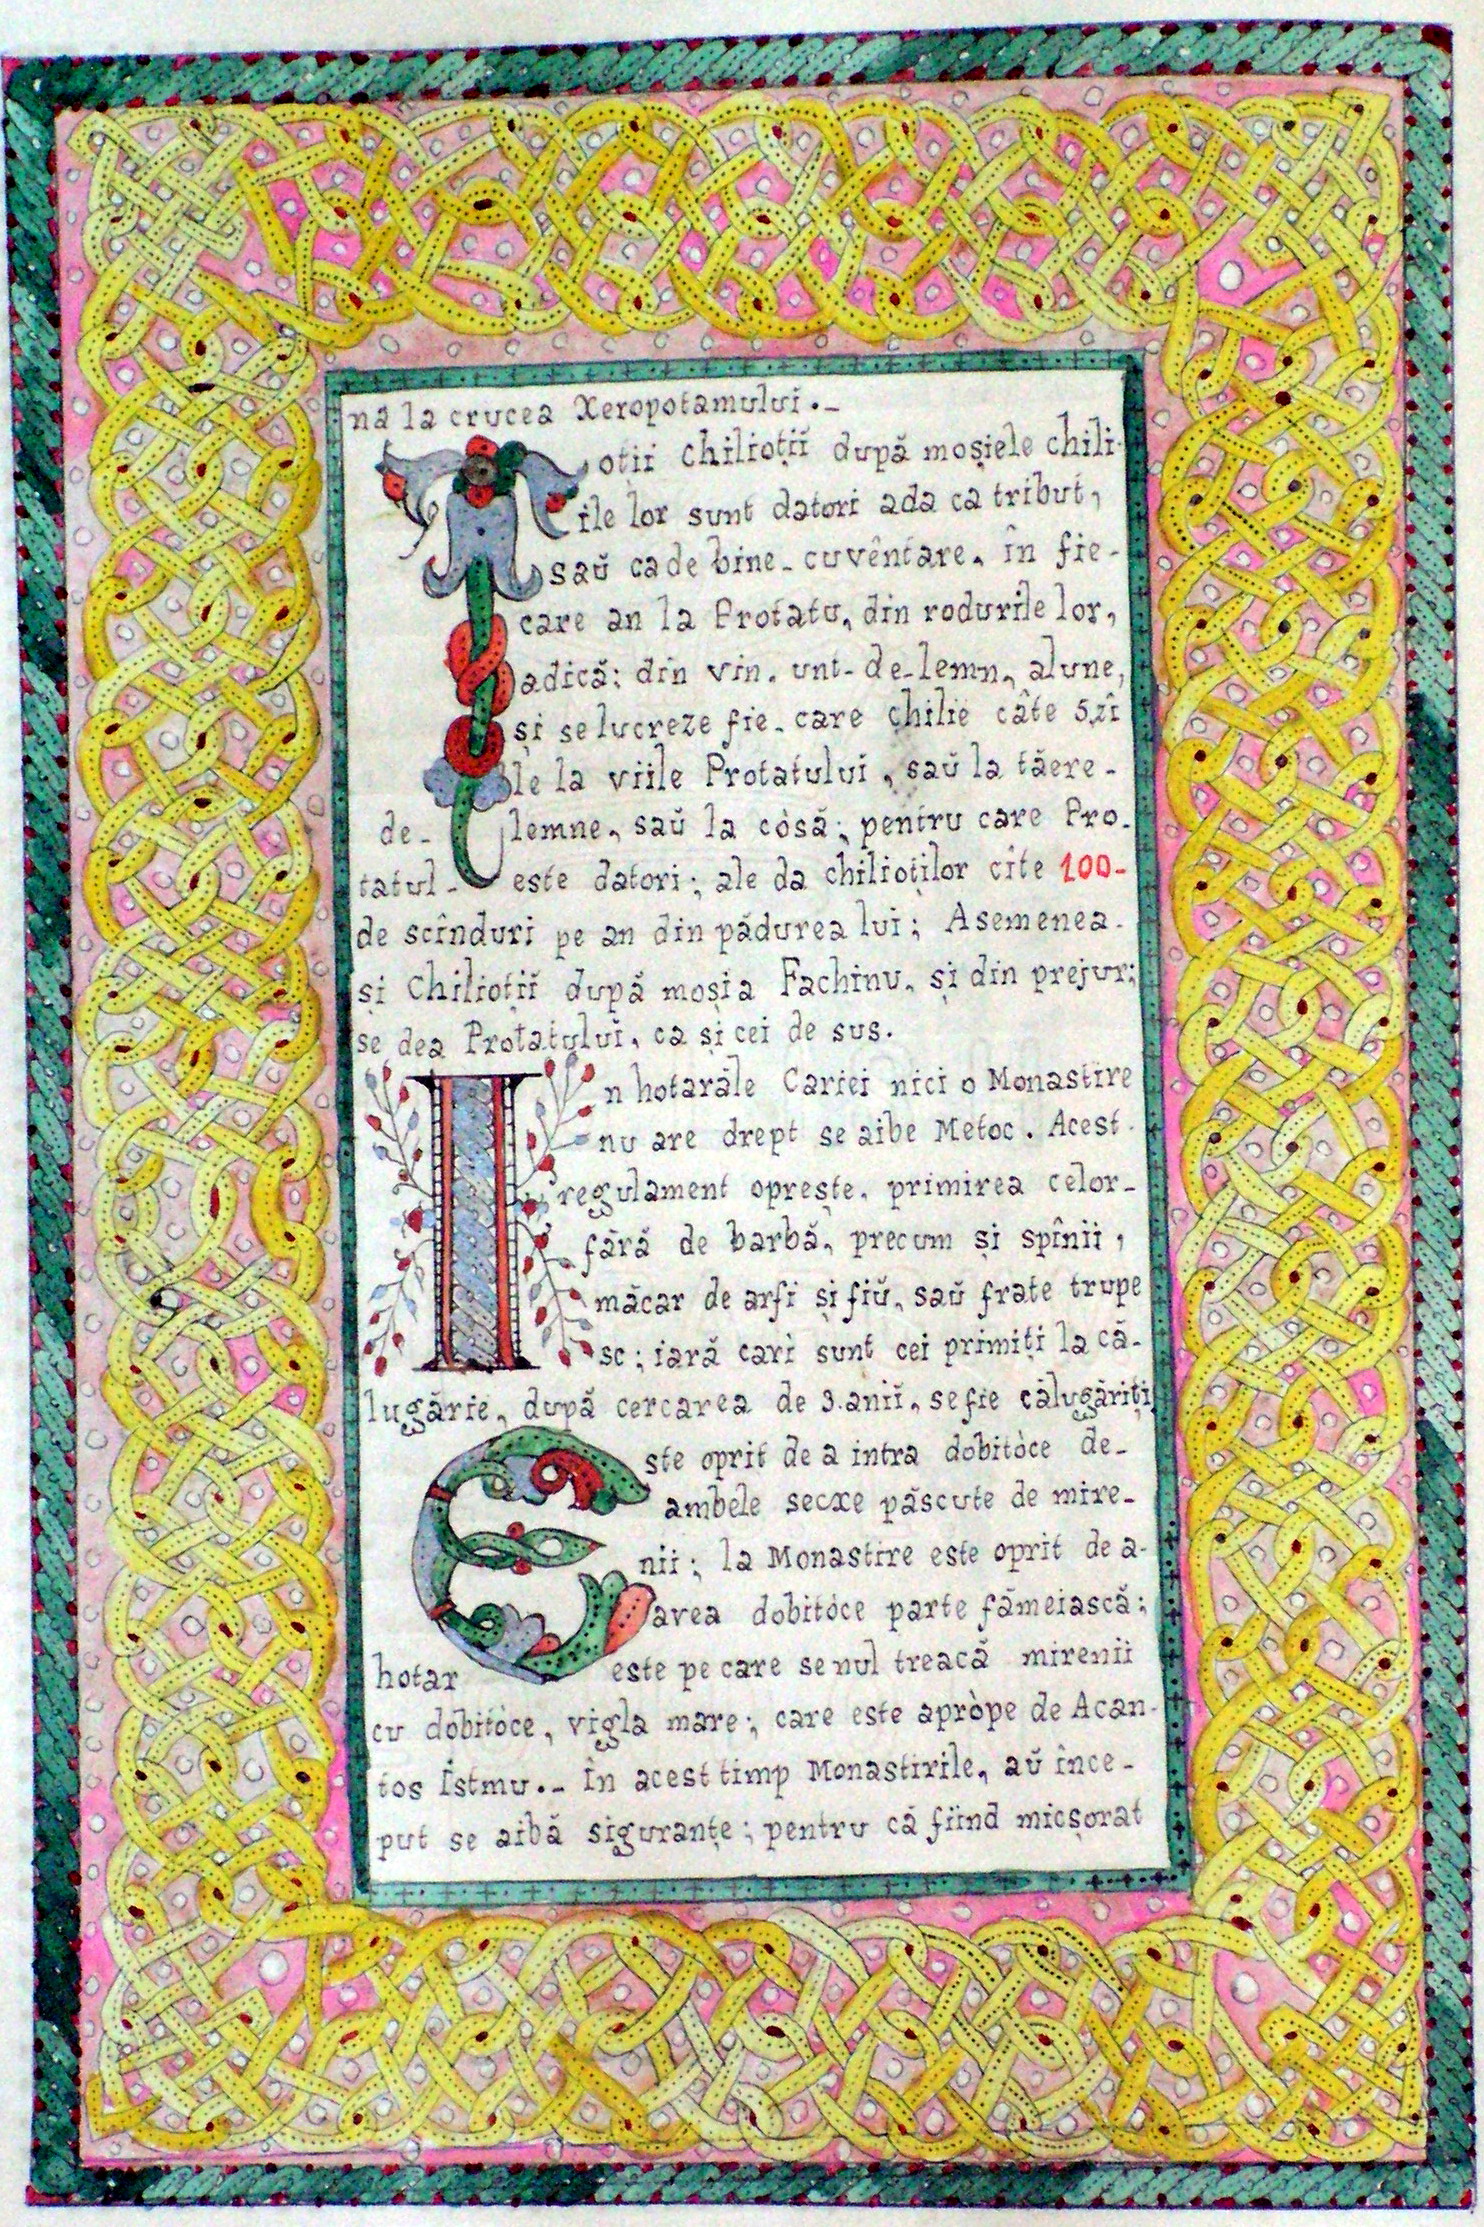 nă la crucea Xeropotamului._
Toții Chilioții după moșiele chili-
ile lor sunt datori ada ca tribut,
saŭ ca de bine-cuvêntare, în fie-
care an la Protatu, din rodurile lor,
adică: din vin, unt-de-lemn, alune,
și se lucreze fie-care chilie câte 5.zî
le la viile Protatului, saŭ la tăere-
de-lemne, saŭ la còsă; pentru care Pro-
tatul-este datori; ale da chilioților cîte 100-
de scînduri pe an din pădurea lui; Asemenea-
și Chilioții după moșia Fachinu, și din prejur;
se dea Protatuluĭ, ca și cei de sus.
In hotarăle Cariei nici o Monastire
nu are drept se aibe Metoc. Acest-
regulament oprește, primirea celor-
fără de barbă, precum și spînii,
măcar de arfi și fiŭ, saŭ frate trupe
sc; iară cari sunt cei primiți la că-
lugărie, după cercarea de 3.aniĭ, se fie călugăriți
Este oprit de a intra dobitòce de-
ambele secxe păscute de mire-
nii; la Monastire este oprit de a-
avea dobitòce parte fămeiască;
hotar este pe care se nul treacă mirenii
cu dobitòce, vigla mare; care este apròpe de Acan-
tos Istmu._ În acest timp Monastirile, aŭ înce-
put se aibă siguranțe; pentru că fiind micșorat